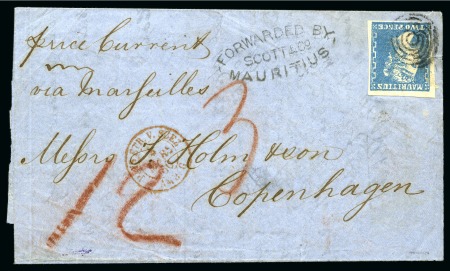 price Current
via Marseilles
FORWARDED BY
SCOTT & Co
MAURITIUS
TWO PENCE
MAURITIUS
3
12
Messrs J. Holm & son
Copenhagen